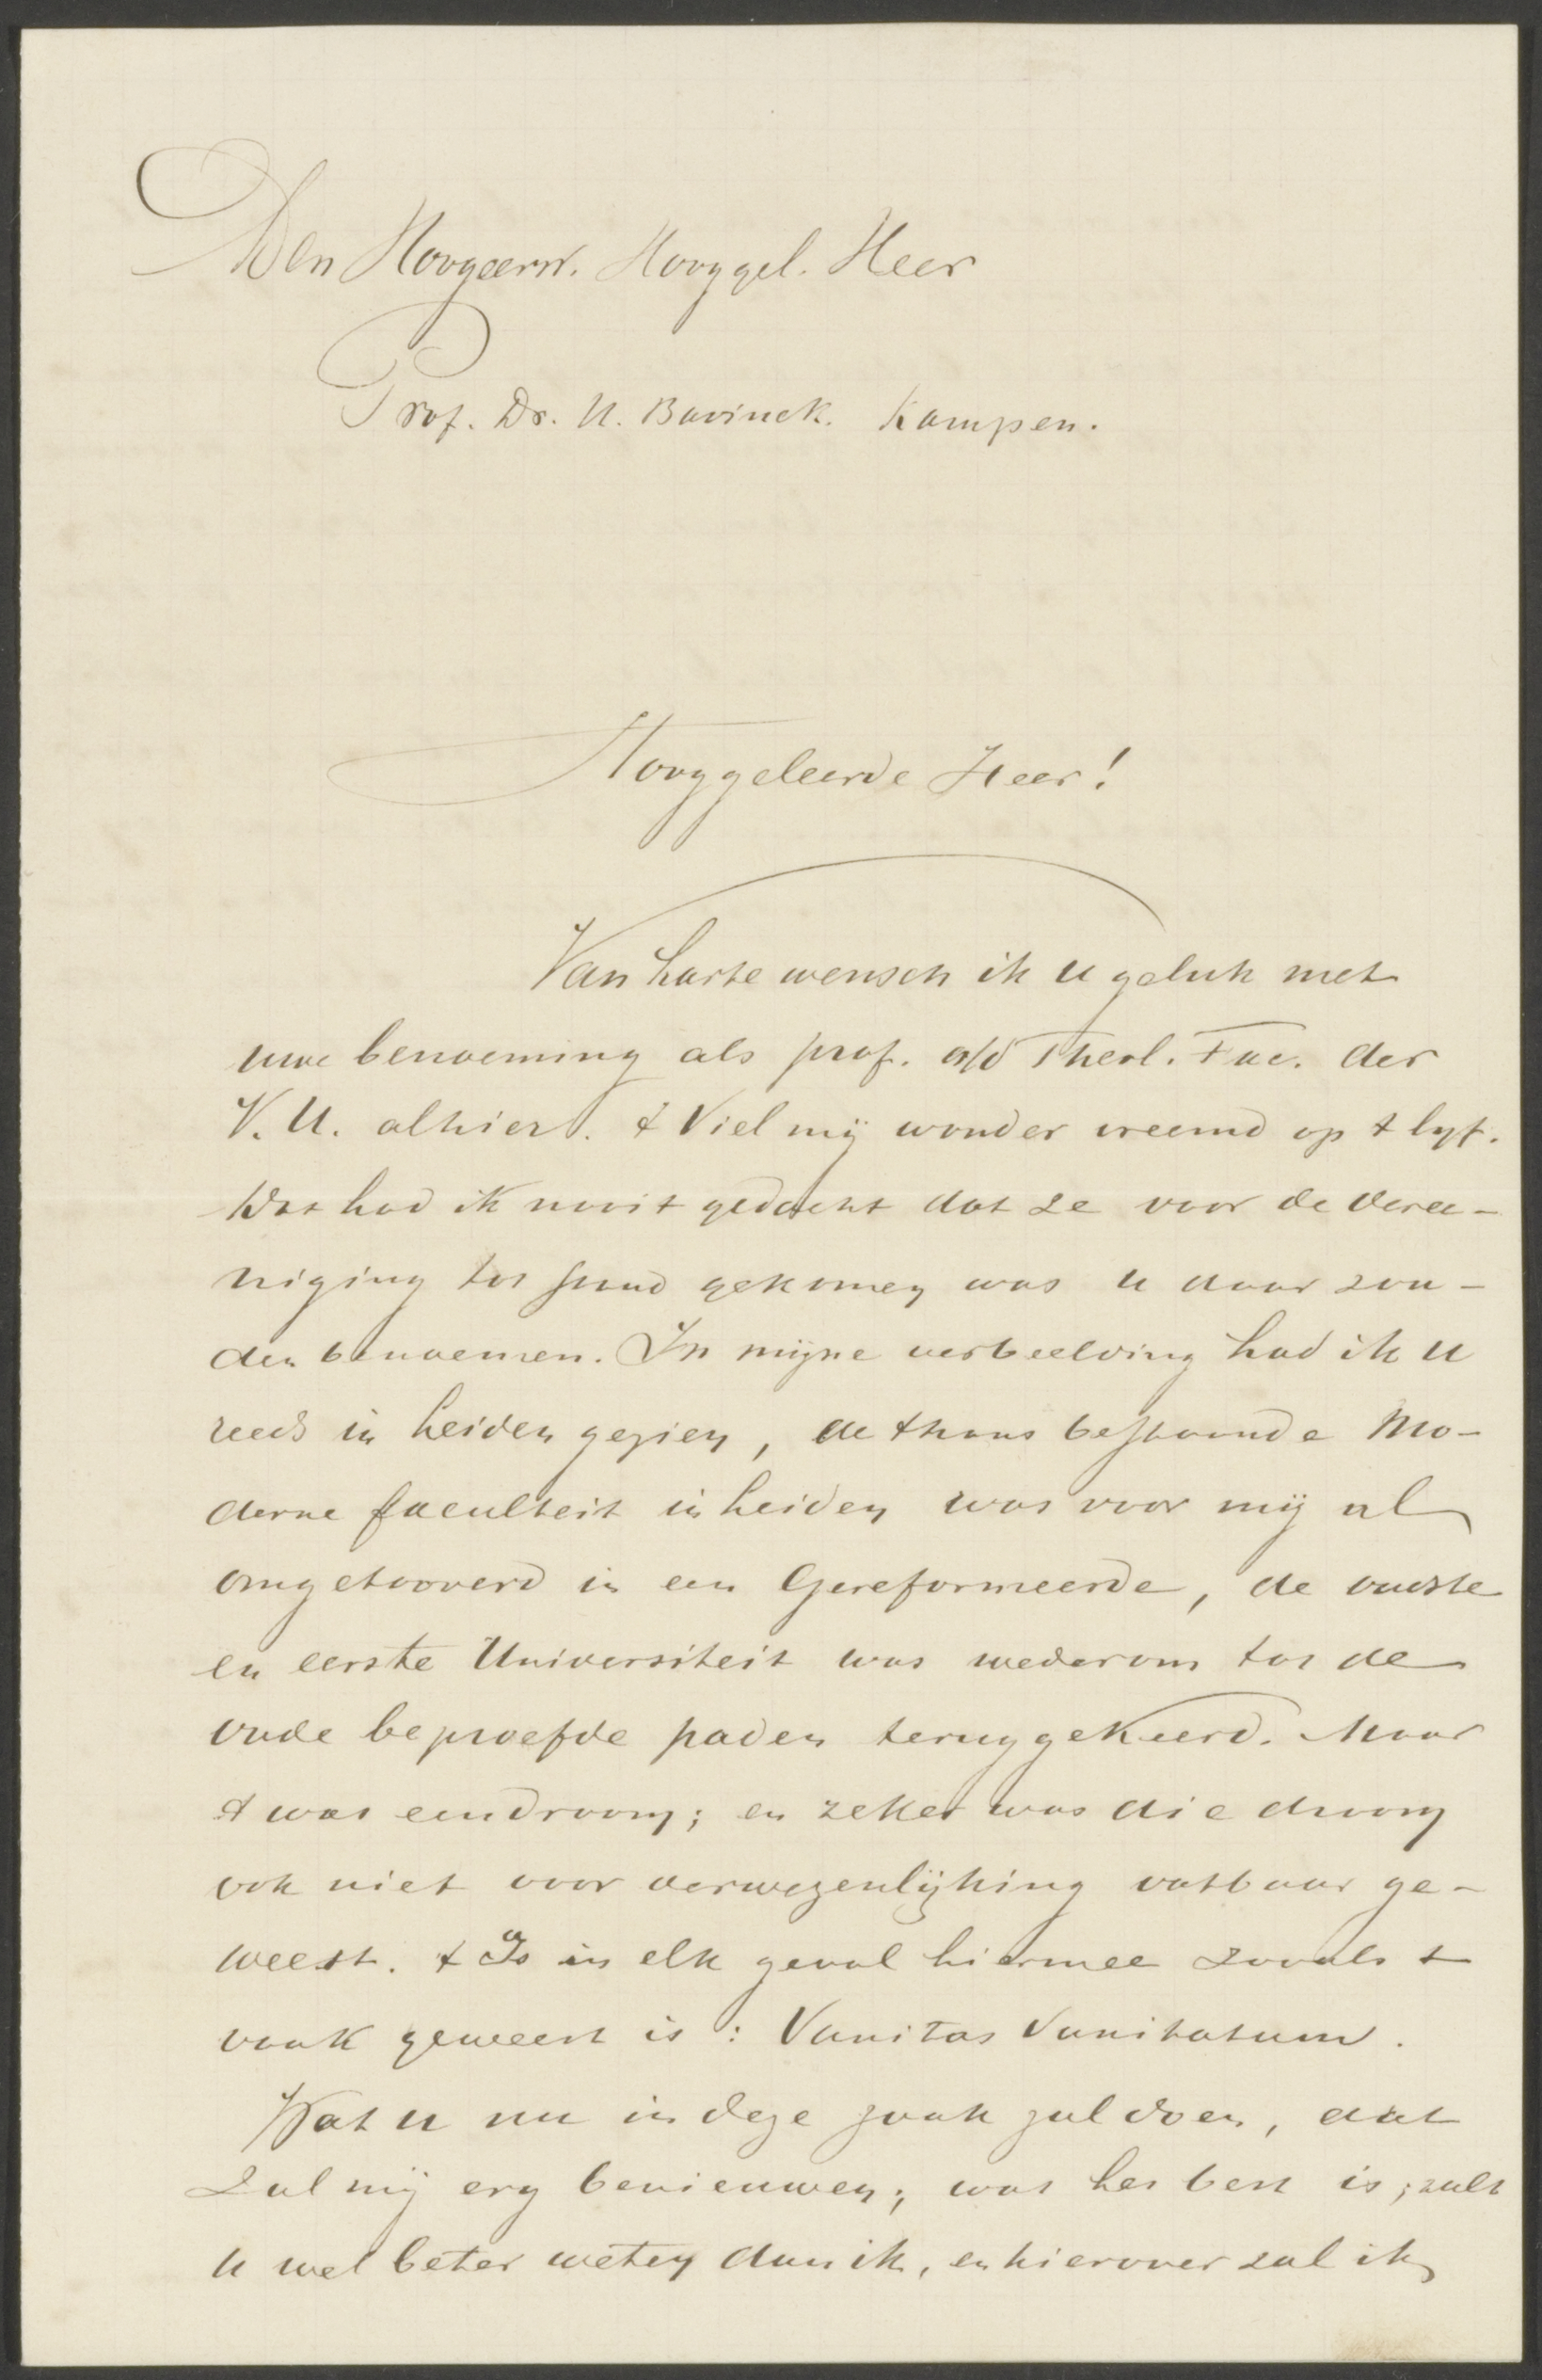 Den Hoogeerw. Hooggel. Heer
Prof. Dr. H. Bavinck. Kampen.
Hooggeleerde Heer!
Van harte wensch ik u geluk met
uwe benoeming als prof. a/d Theol. Fac. der
V. U. alhier. 't Viel mij wonder vreemd op 't lijf.
Wat had ik nooit gedacht dat ze voor de veree-
niging tot stand gekomen was u daar zou-
den benoemen. In mijne verbeelding had ik u
reeds in Leiden gezien, de thans bestaande Mo-
derne faculteit in Leiden was voor mij al
omgetooverd in een Gereformeerde, de oudste
en eerste Universiteit was wederom tot de
oude beproefde paden teruggekeerd. Maar
't was een droom; en zeker was die droom
ook niet voor verwezenlijking vatbaar ge-
weest. 't Is in elk geval hiermee zooals 't
vaak geweest is: Vanitas Vanitatum.
Wat u nu in deze zaak zal doen, dat
zal mij erg benieuwen; wat het best is; zult
u wel beter weten dan ik, en hierover zal ik